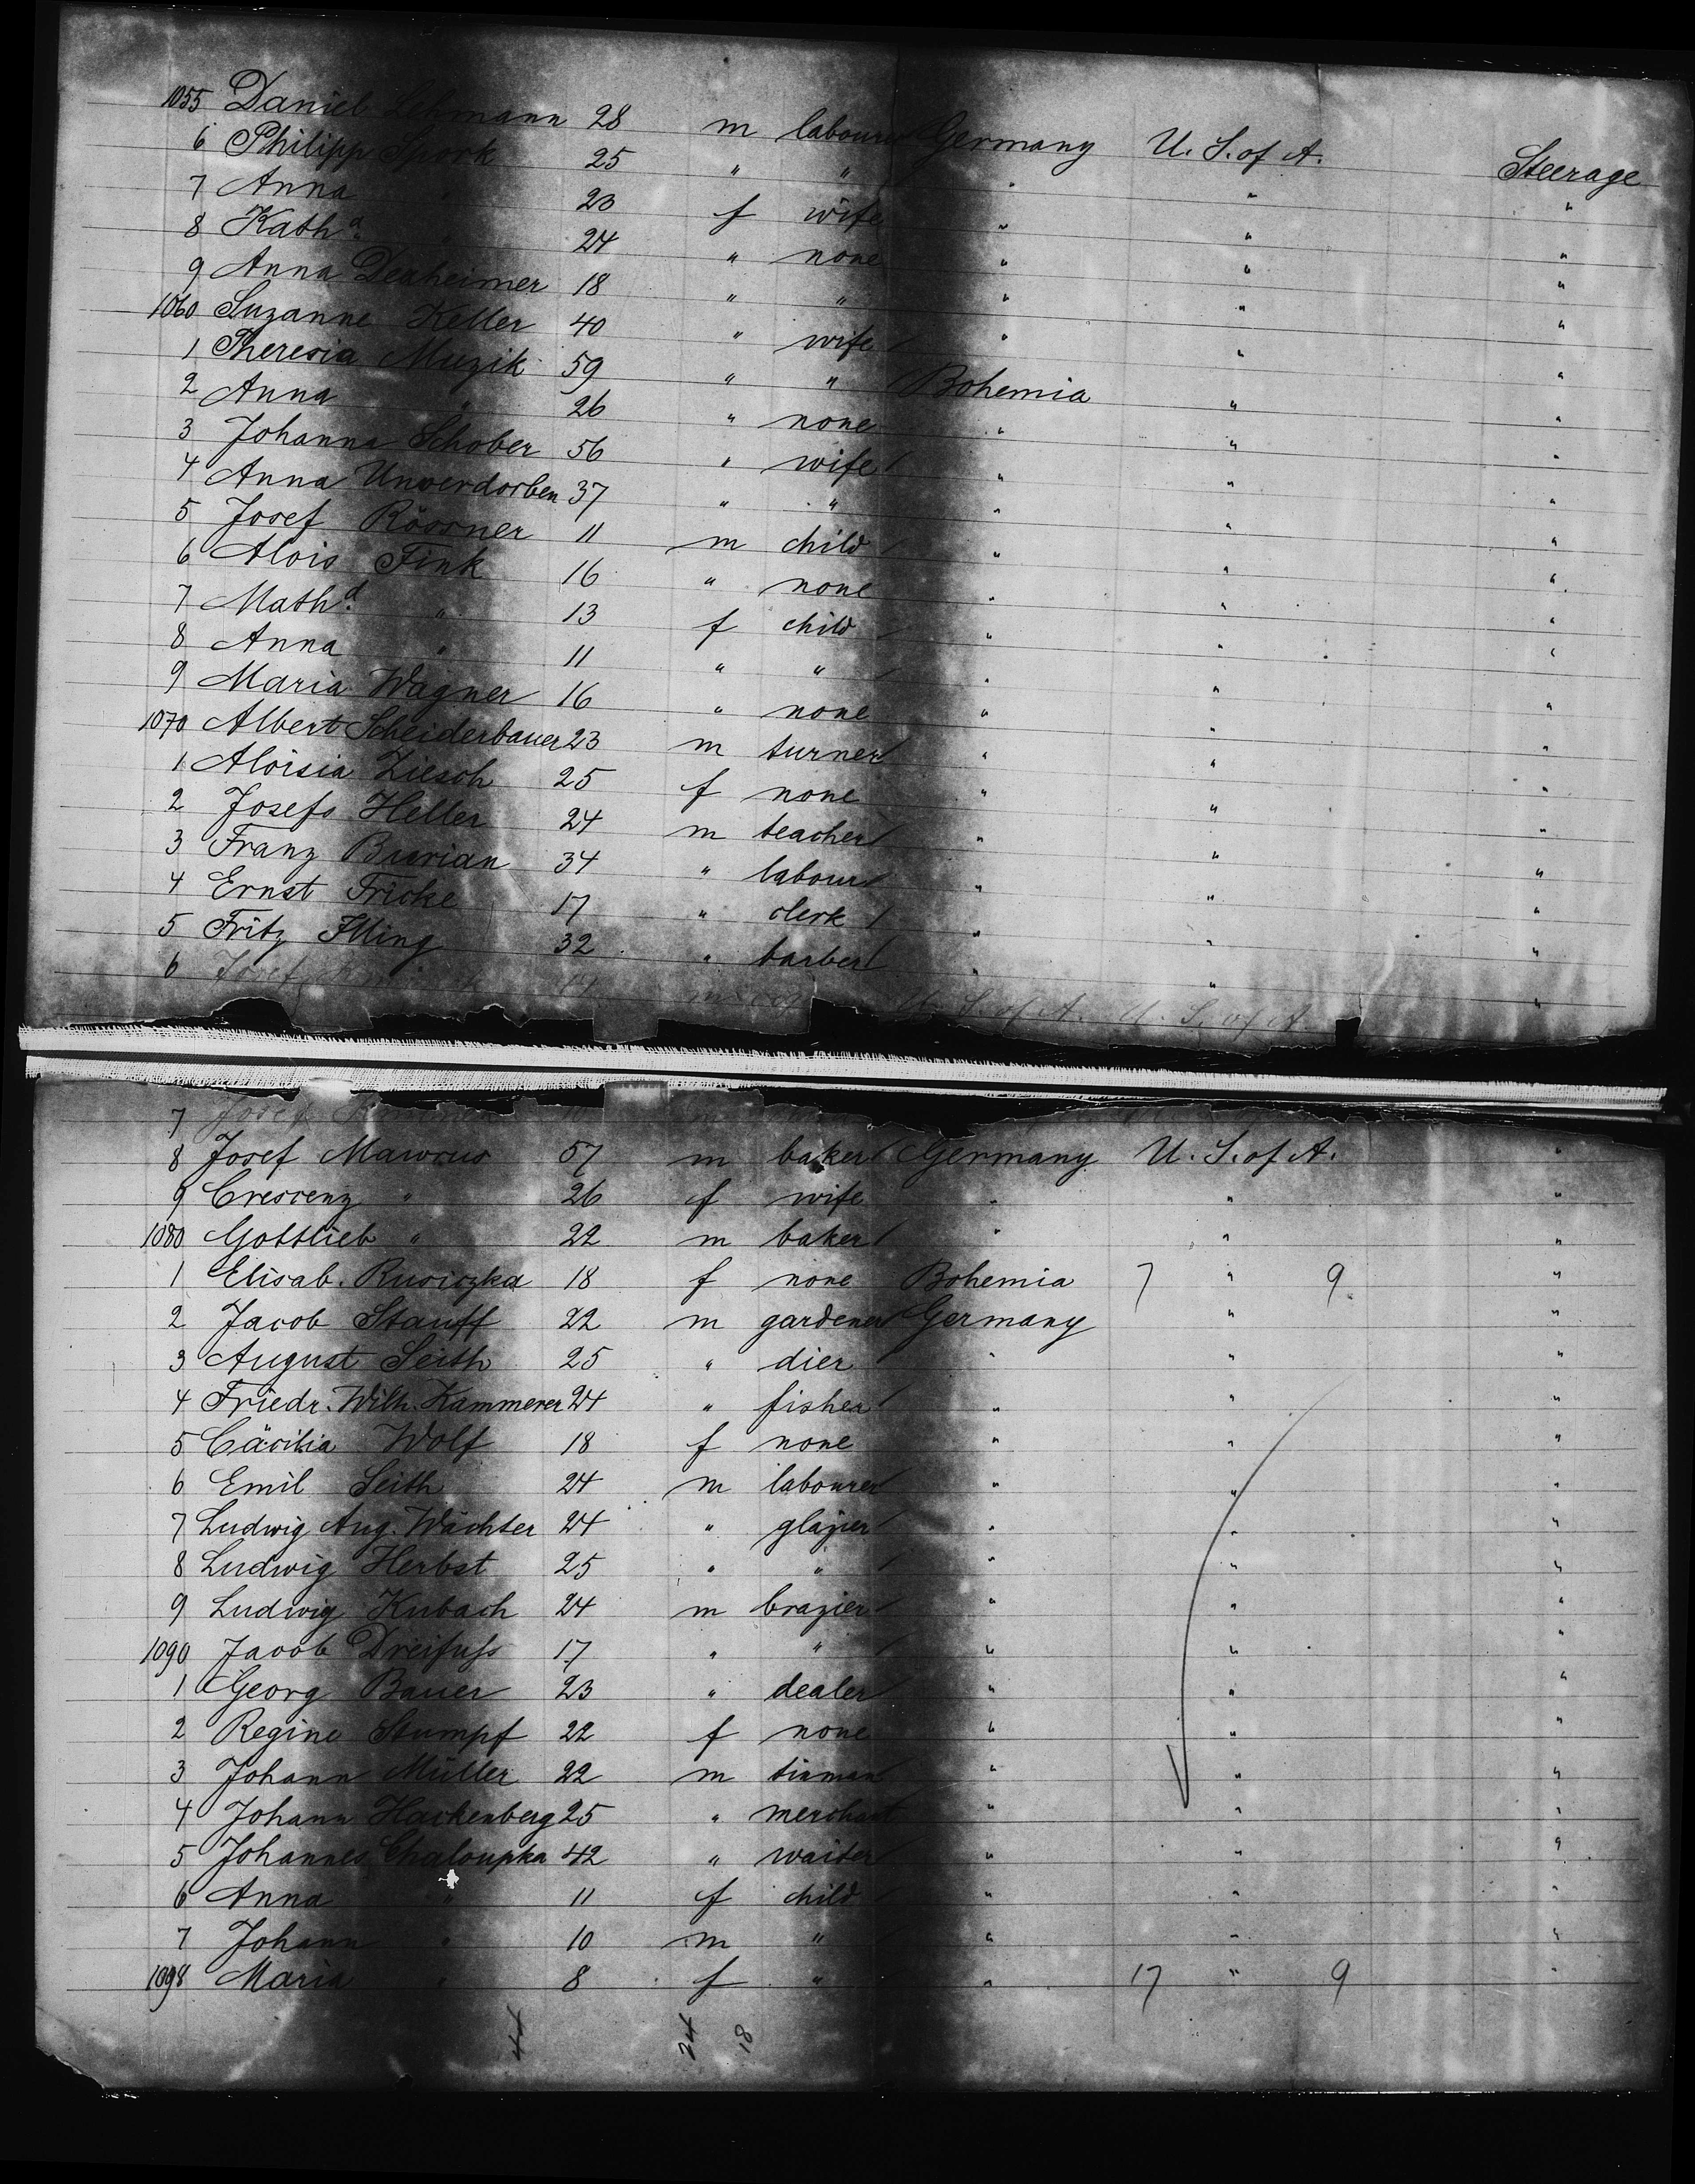 1055 Daniel Lehmann 28 m labourer Germany U. S. of A. Steerage
6 Philipp Spork 25 " " " " "
7 Anna " 23 f wife " " "
8 Kath.a " 24 " none " " "
9 Anna Derheimer 18 " " " " "
1060 Suzanne Keller 40 " wife " " "
1 Theresia Muzik 59 " " Bohemia " "
2 Anna " 26 " none " " "
3 Johanna Schober 56 " wife " " "
4 Anna Unverdorben 37 " " " " "
5 Josef Rössner 11 m child " " "
6 Alois Fink 16 " none " " "
7 Math.d " 13 f child " " "
8 Anna " 11 " " " " "
9 Maria Wagner 16 " none " " "
1070 Albert Scheiderbauer 23 m turner " " "
1 Aloisia Ziesch 25 f none " " "
2 Josefs Heller 24 m teacher " " "
3 Franz Burian 34 " labour " " "
4 Ernst Fricke 17 " clerk " " "
5 Fritz Illing 32 " barber " " "
6 Josef m U. S. of A. U. S. of A. "
7 Josef
8 Josef Marcus 57 m baker Germany U. S. of A. "
9 Crescenz " 26 f wife " " "
1080 Gottlieb " 22 m baker " " "
1 Elisab. Rusiczka 18 f none Bohemia 7 " 9 "
2 Jacob Stauff 22 m gardener Germany " "
3 August Seith 25 " dier " " "
4 Friedr. Wilh. Kammerer 24 " fisher " " "
5 Cäcilia Wolf 18 f none " " "
6 Emil Seith 24 m labourer " " "
7 Ludwig Aug. Wächter 24 " glazier " " "
8 Ludwig Herbst 25 " " " " "
9 Ludwig Kubach 24 m brazier " " "
1090 Jacob Dreifuss 17 " " " " "
1 Georg Bauer 23 " dealer " " "
2 Regine Stumpf 22 f none " " "
3 Johann Müller 22 m tinman " " "
4 Johann Hackenberg 25 " merchant " " "
5 Johannes Chaloupka 42 " waiter " " "
6 Anna " 11 f child " " "
7 Johann " 10 m " " " "
1098 Maria " 8 f " " 17 " 9 "
44 24 18